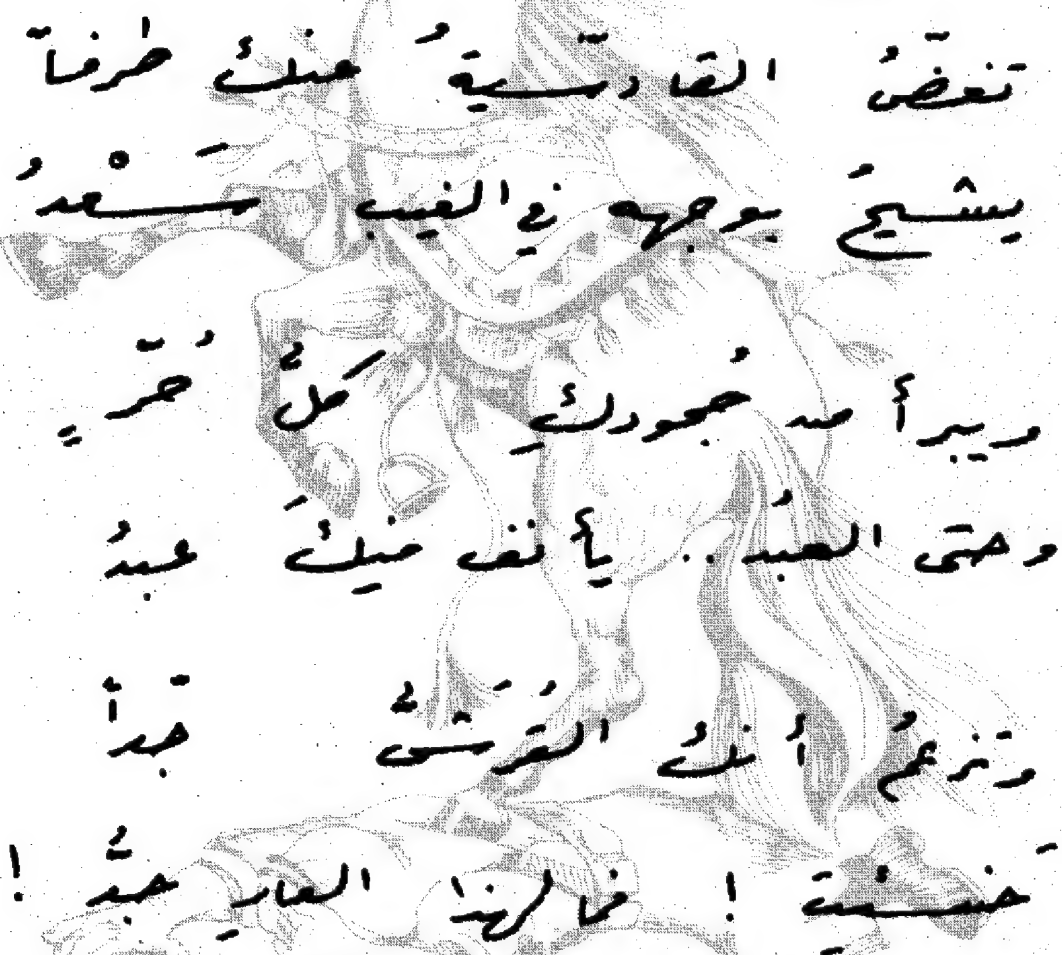 تغضُّ القادسّيةُ عنكَ طرفاً
يشيحُ بوجهه في الغيب سَعْدُ
ويبرأ من جُحودكِ كلُّ حُرٍّ
وحتى العبدُ .. يأنف منكَ عبدُ
وتزعمُ أنكَ القُرَشيُّ جَداً
خسئتَ ! فما لهذا العارِ جدُّ !